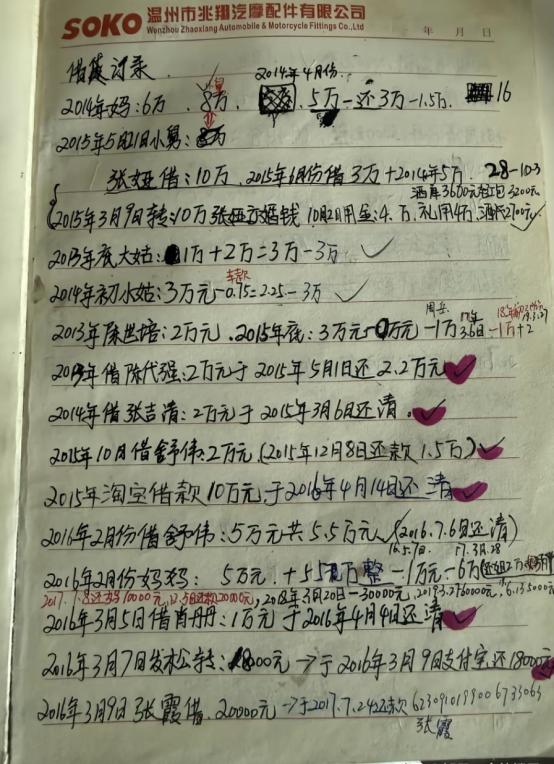 SOKO 温州市兆翔汽摩配件有限公司
Wenzhou Zhaoxiang Automobile & Motorcycle Fittings Co.,Ltd
年 月 日
借 记录
2014年4月份
2014年妈:6万 . 8万 . 5万-还3万-1.5万. 16
2015年5月21日小舅: 万
张娅借:10万 . 2015年6月份借3万+2014年5万 28-10.3
酒席3600元 红包3200元
2015年3月9日转:10万张娅 婚钱 10月2日用金:4.万, 礼用4万, 酒 2700元
2013年底大姑: 1万+2万=3万-3万
车款
2014年初小姑:3万元-0.75=2.25-3万
2013年陈世培:2万元 . 2015年底:3万元- 万元-1万 -1万+2
2013年借陈代强:2万元于2015年5月1日还2.2万元
2014年借张吉清:2万元于2015年3月6日还清.
2015年10月借舒伟:2万元(2015年12月8日还款1.5万)
2015年淘宝借款10万元于2016年4月14日还清
2016年2月份借舒伟:5万元共5.5万元 (2016.7.6日还清)
16.5.7日. 17.3月.28
2016年2月份妈妈: 5万元. +5 万整-1万元-6万
2017. 还妈10000元, 还款20000元, 2018年3月20日-30000元,
2016年3月5日借肖丹:1万元于2016年4月4日还清
2016年3月7日 松转: 8000元→于2016年3月9日支付宝还18000元
2016年3月9日张霞借. 20000元→于2017.7.24 还款 6230910199006733063
张霞